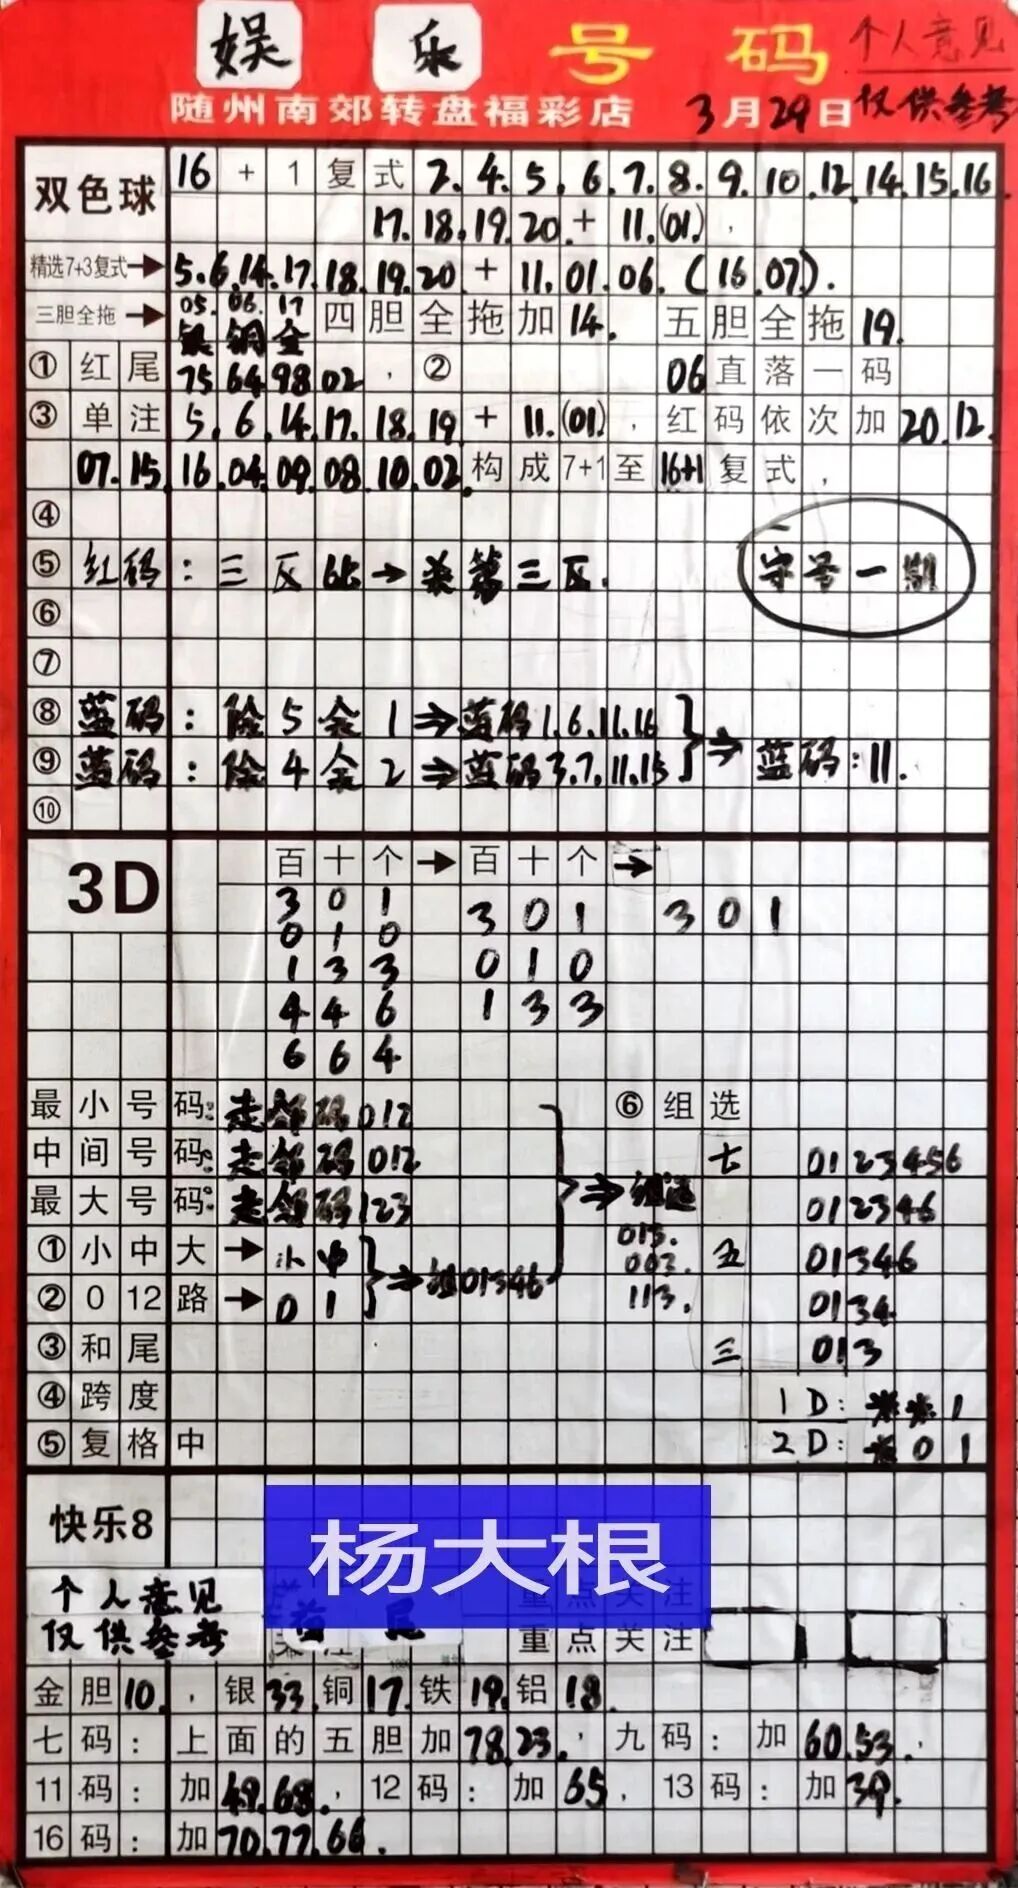 娱乐号码 个人意见
随州南郊转盘福彩店 3月29日 仅供参考
双色球 16+1复式 2.4.5.6.7.8.9.10.12.14.15.16
17.18.19.20.+11.(01),
精选7+3复式→ 5.6.14.17.18.19.20+11.01.06.(16.07).
三胆全拖→ 05.06.17 四胆全拖加14. 五胆全拖19.
银铜金
①红尾 75 64 98 02,② 06直落一码
③单注 5.6.14.17.18.19+11.(01),红码依次加20.12.
07.15.16.04.09.08.10.02.构成7+1至16+1复式,
④
⑤红码:三区比→杀第三区. 守号一期
⑥
⑦
⑧蓝码:除5余1⇒蓝码1.6.11.16
⑨蓝码:除4余2⇒蓝码3.7.11.15 ⇒蓝码:11.
⑩
3D 百十个→百十个→
301 301 301
010 010
133 133
446
664
最小号码:走邻码012 ⑥组选
中间号码:走邻码012 七 0123456
最大号码:走邻码123 ⇒组选 012346
①小中大→小中 013. 五 01346
003.
②012路→01 ⇒组01346 113. 0134
③和尾 三 013
④跨度 1D:**1
⑤复格中 2D:*01
快乐8
杨大根
个人意见 重点关注
仅供参考 重点关注
金胆10.,银33.铜17.铁19.铝18.
七码:上面的五胆加78.23.,九码:加60.53.,
11码:加49.68.,12码:加65,13码:加39.
16码:加70.77.66.